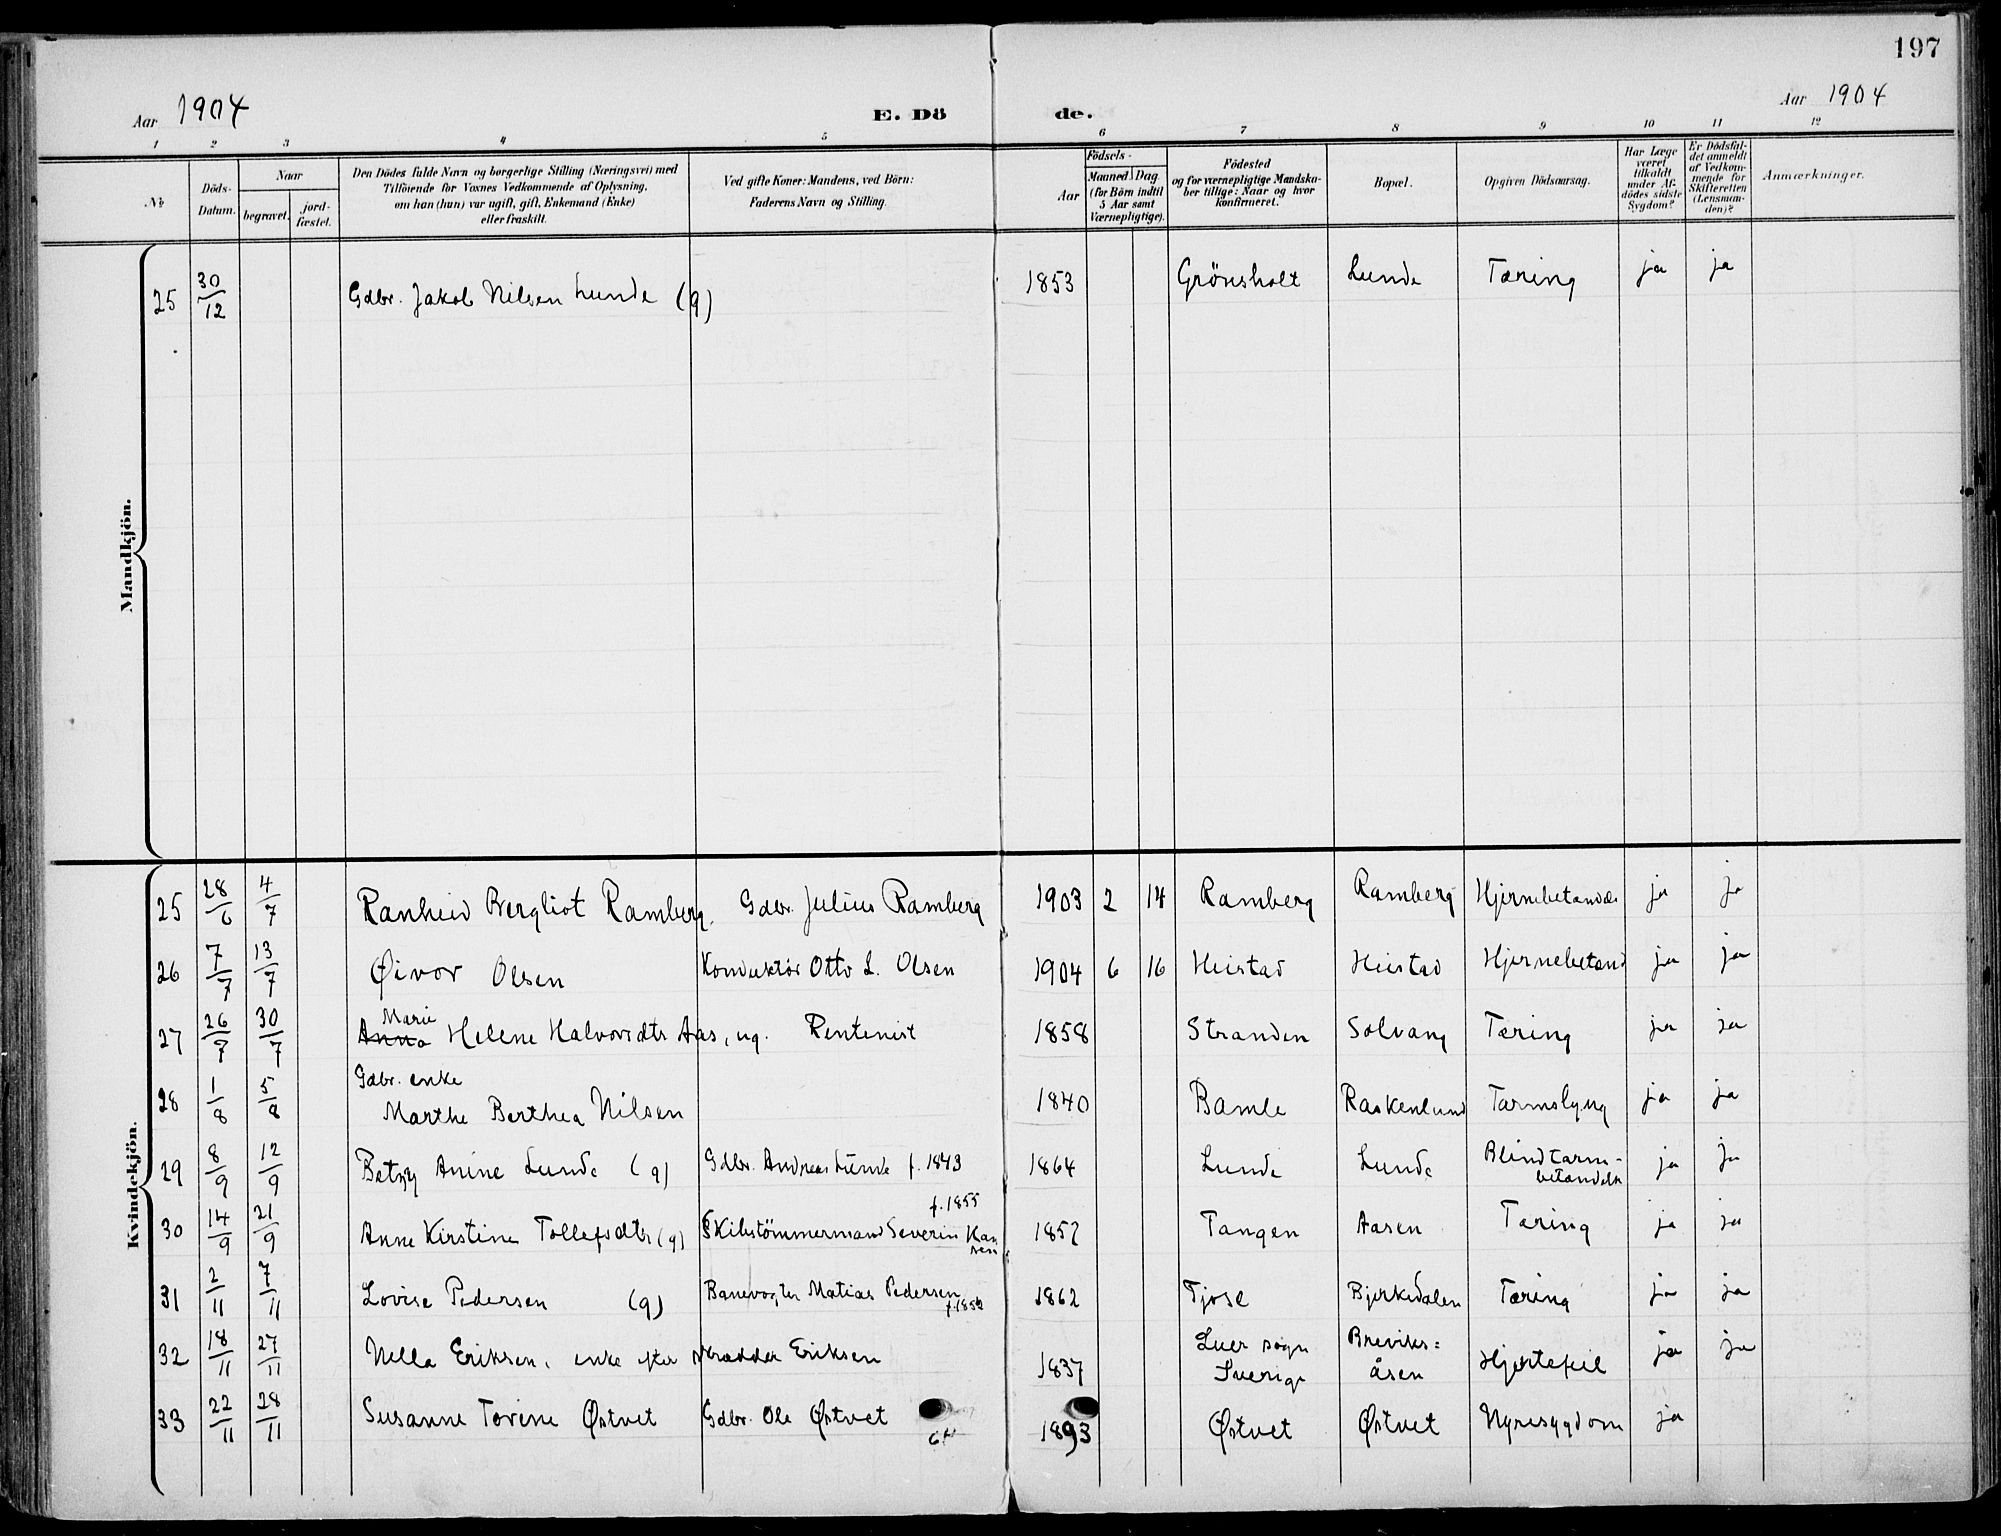 197
Aar 1904 E. Dö de. Aar 1904
1 2 3 4 5 6 7 8 9 10 11 12
№
Döds-
Datum.
Naar
begravet.
jord-
fæstet.
Den Dödes fulde Navn og borgerlige Stilling (Næringsvei) med
Tilföiende for Voxnes Vedkommende af Oplysning,
om han (hun) var ugift, gift, Enkemand (Enke)
eller fraskilt.
Ved gifte Koner: Mandens, ved Börn:
Faderens Navn og Stilling.
Aar
Födsels-
Maaned Dag.
(for Börn indtil
5 Aar samt
Værnepligtige).
Födested
og for værnepligtige Mandska-
ber tillige: Naar og hvor
konfirmeret.
Bopæl.
Opgiven Dödsaarsag.
Har Læge
været
tilkaldt
under Af-
dödes sidste
Sygdom?
Er Dödsfal-
det anmeldt
af Vedkom-
mende for
Skifteretten
(Lensman-
den)?
Anmærkninger.
Mandkjön.
25 30/12 Gdbr. Jakob Nilsen Lunde (g) 1853 Grönsholt Lunde Tæring ja ja
Kvindekjön.
25 28/6 4/7 Ranheid Bergliot Ramberg. Gdbr. Julius Ramberg 1903 2 14 Ramberg Ramberg Hjernebetændes ja ja
26 7/7 13/7 Øivor Olsen Konduktör Otto L. Olsen 1904 6 16 Heistad Heistad Hjernebetænd ja ja
Marie
27 26/7 30/7 Anna Helene Halvorsdtr Aas, ug. Rentenist 1858 Stranden Solvang Tæring ja ja
Gdbr. enke
28 1/8 5/8 Marthe Berthea Nilsen 1840 Bamle Raskenlund Tarmslyng ja ja
29 8/9 12/9 Betzy Anine Lunde (g) Gdbr. Andreas Lunde f. 1843 1864 Lunde Lunde Blindtarm-
betændelse ja ja
f. 1855
30 14/9 21/9 Anne Kirstine Tollefsdtr (g) Skibstömmermand Severin Han
sen 1852 Tangen Aasen Tæring ja ja
31 2/11 7/11 Lovise Pedersen (g) Banevogter Matias Pedersen 1862 Tjose Bjerkedalen Tæring ja ja
32 18/11 27/11 Nella Eriksen, enke efter skrædder Eriksen 1837 Luer sogn
Sverige Breviks=
åsen Hjertefeil ja ja
33 22/11 28/11 Susanne Torine Østvet Gdbr. Ole Østvet 1893 Østvet Østvet Nyresygdom ja